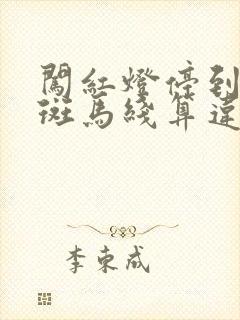 闖紅燈停到
斑馬綫算違
李束成